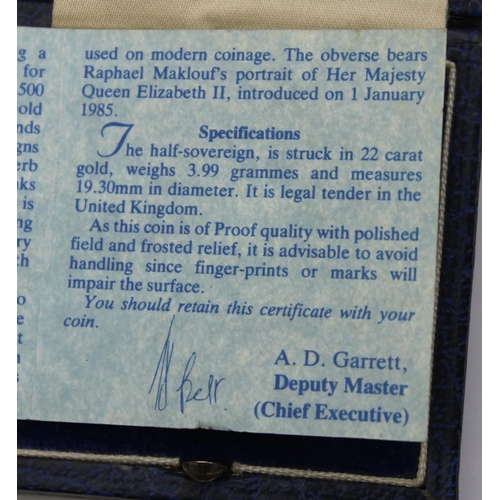 g a
for
500
old
nds
gns
erb
ks
is
ng
ry
h
o
e
t
n
s
used on modern coinage. The obverse bears
Raphael Maklouf's portrait of Her Majesty
Queen Elizabeth II, introduced on 1 January
1985.
Specifications
The half-sovereign, is struck in 22 carat
gold, weighs 3.99 grammes and measures
19.30mm in diameter. It is legal tender in the
United Kingdom.
As this coin is of Proof quality with polished
field and frosted relief, it is advisable to avoid
handling since finger-prints or marks will
impair the surface.
You should retain this certificate with your
coin.
A. D. Garrett,
Deputy Master
(Chief Executive)